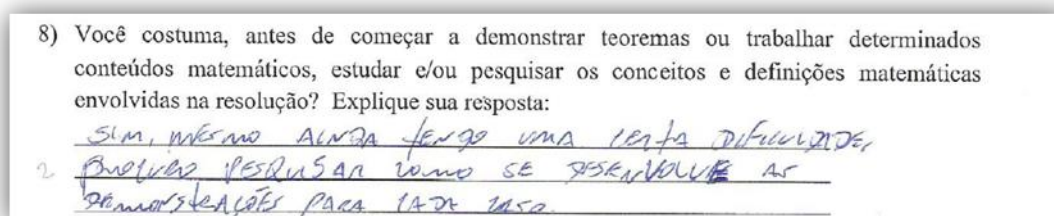 8) Você costuma, antes de começar a demonstrar teoremas ou trabalhar determinados
conteúdos matemáticos, estudar e/ou pesquisar os conceitos e definições matemáticas
envolvidas na resolução? Explique sua resposta:
SIM, MESMO AINDA TENDO UMA CERTA DIFICULDADE,
2 PROCURO PESQUISAR COMO SE DESENVOLVE AS
DEMONSTRAÇÕES PARA CADA CASO.